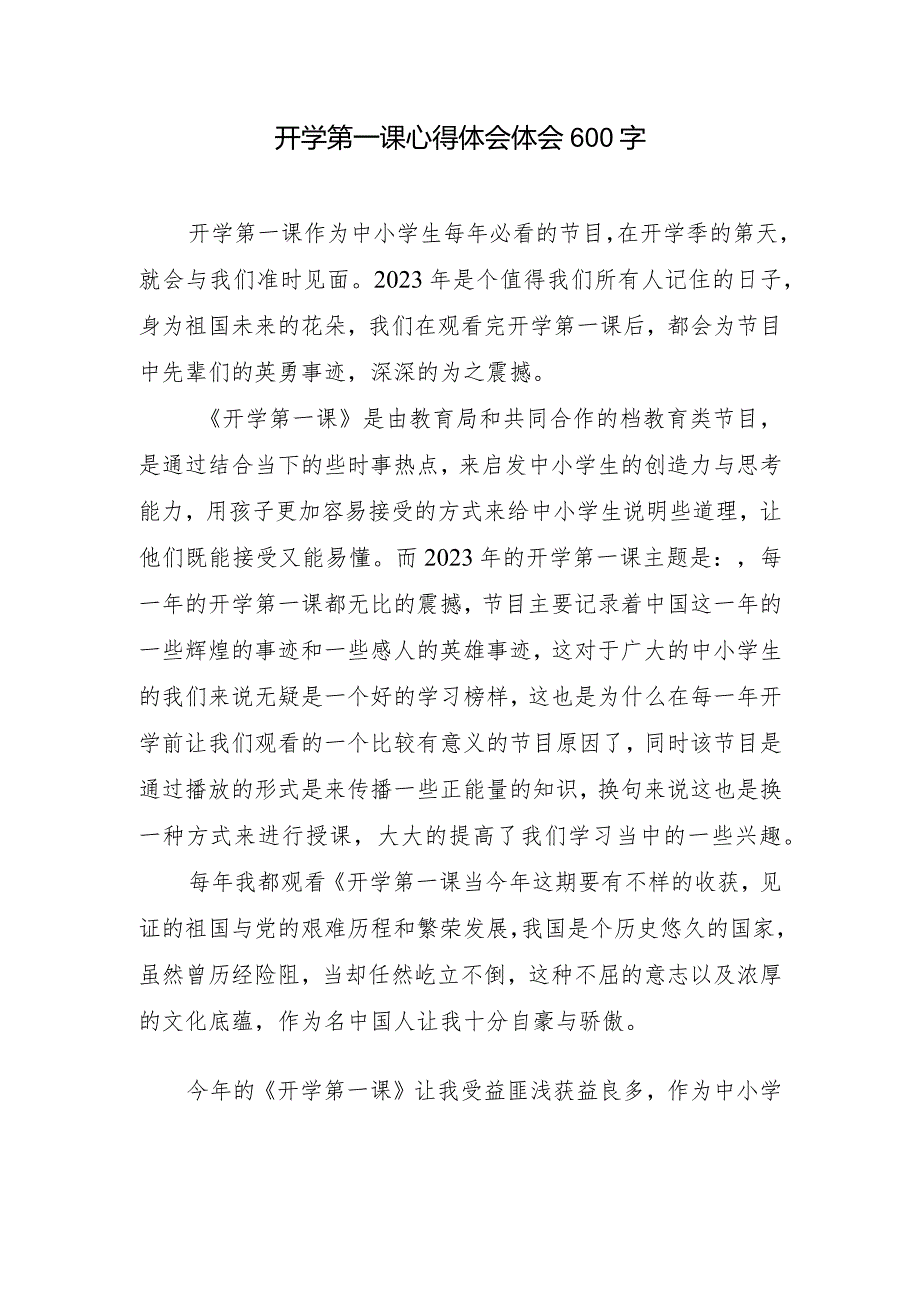 开学第一课心得体会体会600字
开学第一课作为中小学生每年必看的节目，在开学季的第天，
就会与我们准时见面。2023年是个值得我们所有人记住的日子，
身为祖国未来的花朵，我们在观看完开学第一课后，都会为节目
中先辈们的英勇事迹，深深的为之震撼。
《开学第一课》是由教育局和共同合作的档教育类节目，
是通过结合当下的些时事热点，来启发中小学生的创造力与思考
能力，用孩子更加容易接受的方式来给中小学生说明些道理，让
他们既能接受又能易懂。而2023年的开学第一课主题是：，每
一年的开学第一课都无比的震撼，节目主要记录着中国这一年的
一些辉煌的事迹和一些感人的英雄事迹，这对于广大的中小学生
的我们来说无疑是一个好的学习榜样，这也是为什么在每一年开
学前让我们观看的一个比较有意义的节目原因了，同时该节目是
通过播放的形式是来传播一些正能量的知识，换句来说这也是换
一种方式来进行授课，大大的提高了我们学习当中的一些兴趣。
每年我都观看《开学第一课当今年这期要有不样的收获，见
证的祖国与党的艰难历程和繁荣发展，我国是个历史悠久的国家，
虽然曾历经险阻，当却任然屹立不倒，这种不屈的意志以及浓厚
的文化底蕴，作为名中国人让我十分自豪与骄傲。
今年的《开学第一课》让我受益匪浅获益良多，作为中小学